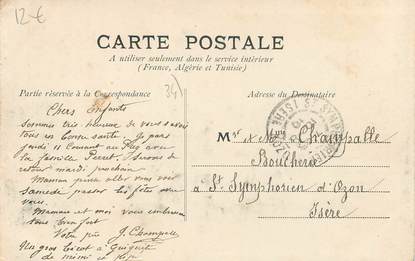 12-€
CARTE POSTALE
A utiliser seulement dans le service intérieur
(France, Algérie et Tunisie)
Partie réservée à la Correspondance
Adresse du Destinataire
34)
Chers Enfants
Sommes très heureux de vous savoir
tous en bonne santé. Je pars
jeudi 11 Courant au Puy avec
la famille Perret. Serons de
retour mardi prochain
Maman pense aller vous voir
samedi passer les fêtes avec
vous.
Maman et moi vous embrassons
tous bien fort
Votre père J. Champalle
Un gros bécot à
de mimi
Mr & Mme Champalle
Boucherie
à St Symphorien d'Ozon
Isère